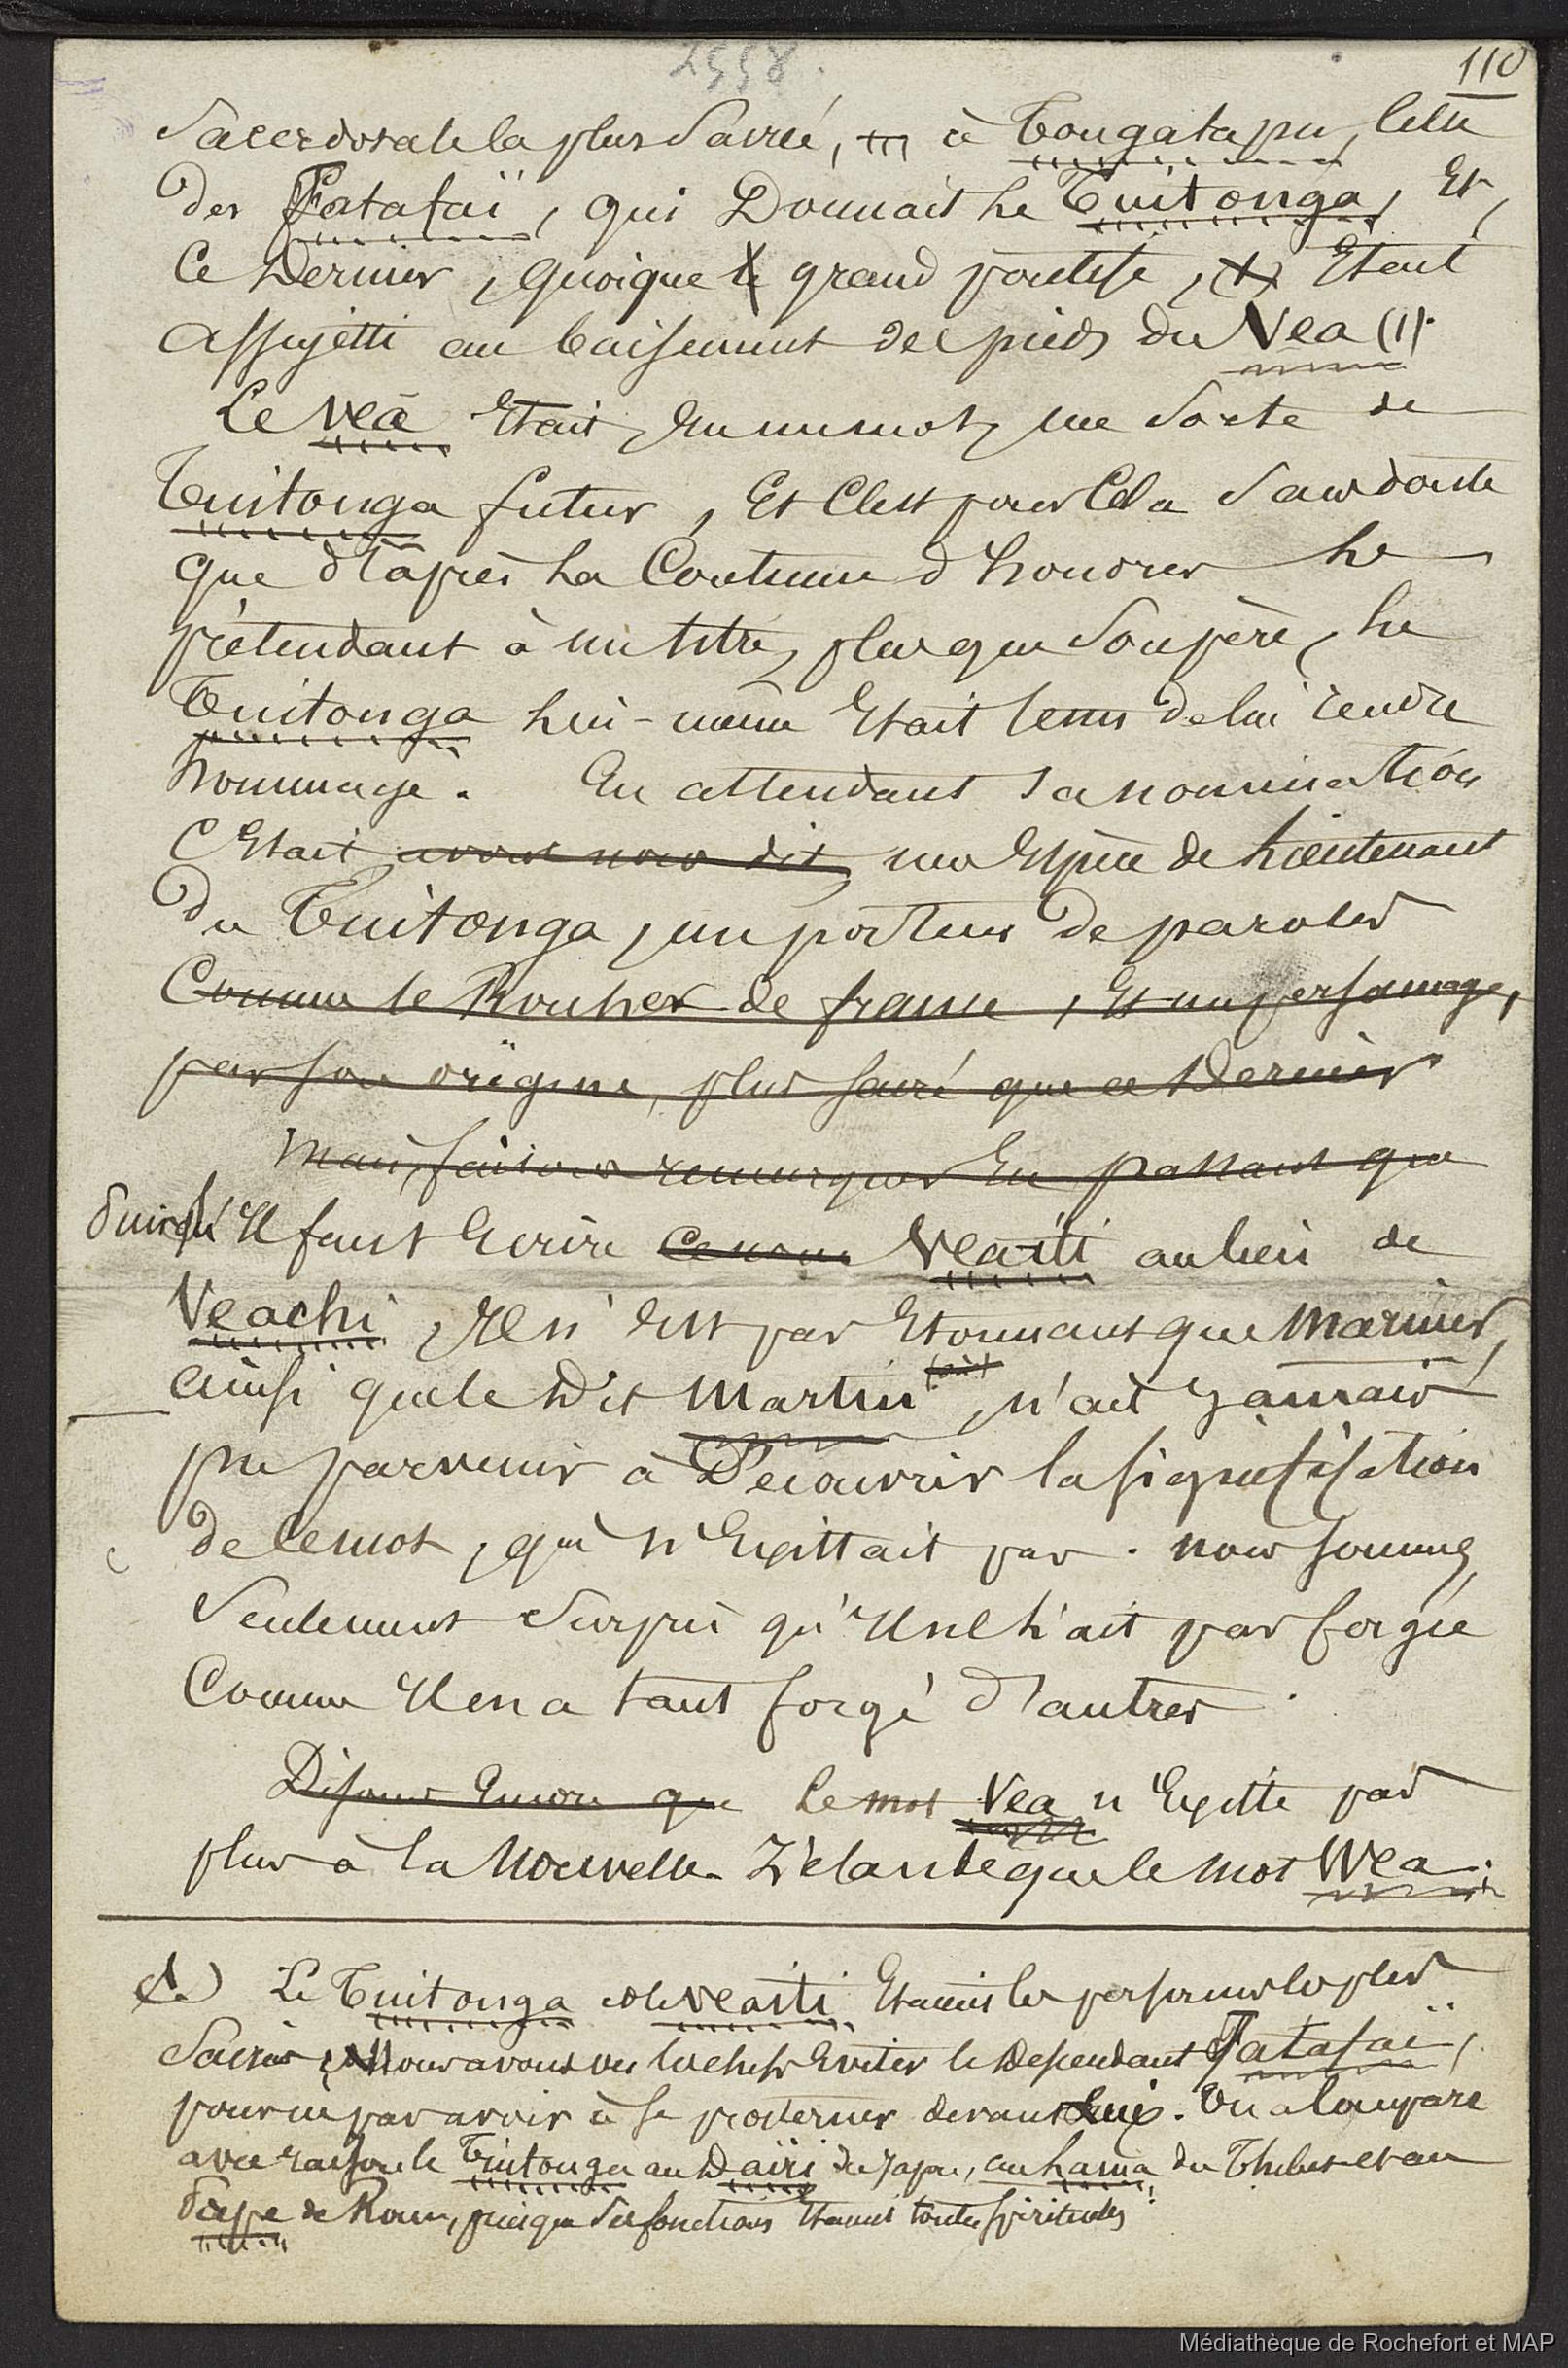 2558.
110
Sacerdotale la plus Sacrée, à Tongatapu, Celle
des Fatafaï, qui Donnait le Tuitonga, Et,
Ce Dernier, quoique le grand pontife, Etait
assujetti au baisement des pieds du Vea (1).
Le Vea Etait, En un mot, une Sorte de
Tuitonga futur, Et C'est pour Cela Sans doute
que d'après la Coutume d'honorer le
prétendant à un titre, plus que Son père, le
Tuitonga lui-même Etait tenu de lui rendre
hommage. En attendant sa nomination
C'Etait, avons nous dit, une Espèce de Lieutenant
du Tuitonga, un porteur de paroles
Comme le Rouher de france, Et un personnage,
par son origine, plus sacré que ce Dernier
Mais faisons remarquer En passant que
Puisqu'Il faut Ecrire ce nom Veaiti au lieu de
Veachi, Il n'Est pas Etonnant que Mariner,
ainsi que le Dit Martin, n'ait Jamais
pu parvenir à Découvrir la signification
de Ce mot, qui n'Existait pas. nous sommes
Seulement Surpris qu'Il ne l'ait pas forgée
Comme Il en a tant forgé d'autres.
Disons Encore que Le mot Vea n'Existe pas
plus à la Nouvelle-Zélande que le mot Wea.
(1) Le Tuitonga et le Veaiti Etaient les personnes les plus
Sacrées. Nous avons vu les chefs Eviter le Descendant Fatafai,
pour ne pas avoir à se prosterner devant lui. On a Comparé
avec raison le Tuitonga au Daïri du Japon, au Lama du Thibet et au
Pape de Rome, puisque Ses fonctions Etaient toutes spirituelles.
Médiathèque de Rochefort et MAP